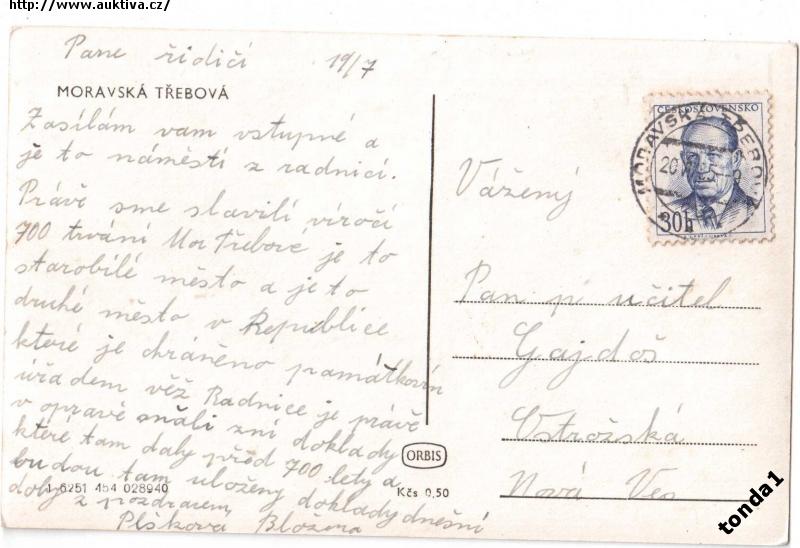 http://www.auktiva.cz/
Pane řidičí 19/7
MORAVSKÁ TŘEBOVÁ
Zasílám vam vstupné a
je to náměstí z radnicí.
Právě sme slavilí viročí
700 trvání Mor Třebové je to
starobilé město a je to
druhé město v Republice
které je chráněno památkovín
úřadem věž Radnice je právě
v opravě snăli zní doklady
které tam daly před 700 lety a
budou tam uloženy doklady dnešní
doby z pozdravem
Plškova Bložena
1-6251 454 028940
ORBIS
Kčs 0,50
ČESKOSLOVENSKO
30h
MORAVSKÁ TŘEBOVÁ
20
Vážený
Pan pí učitel
Gajdoš
Ostrožská
Nová Ves
tonda1